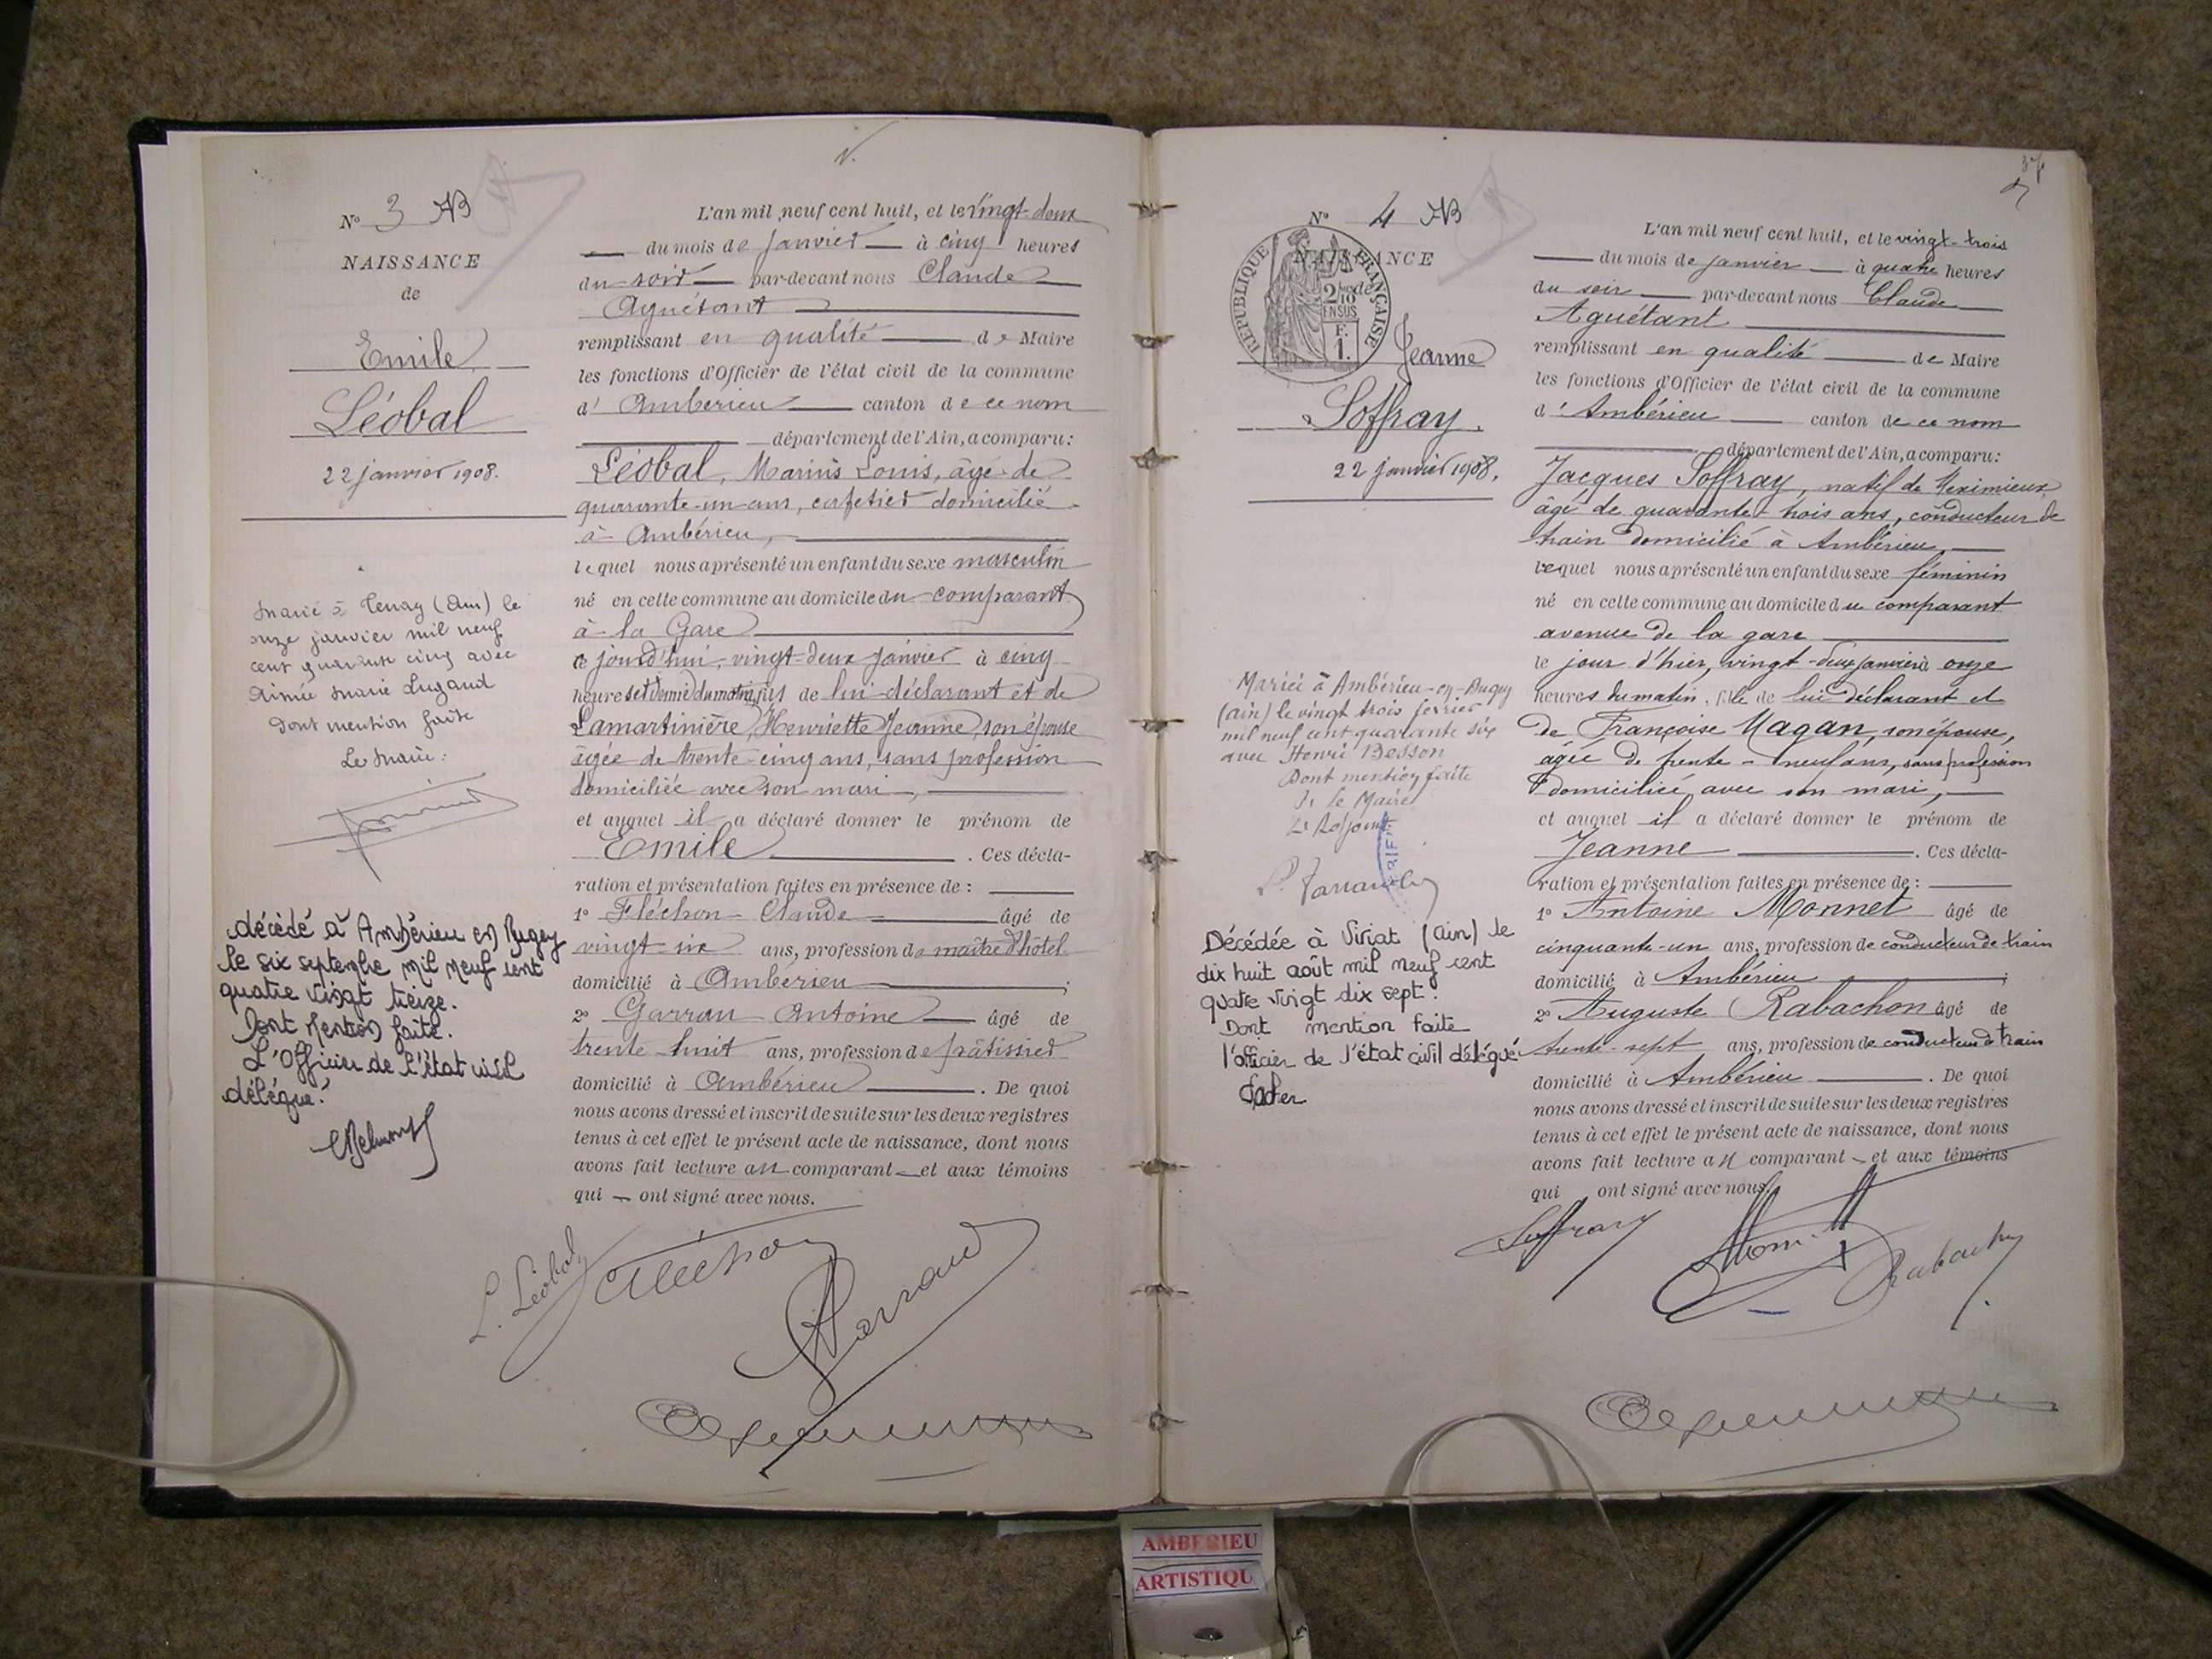 Nº 3 AB
NAISSANCE
de
Emile
Léobal
22 janvier 1908.
Marié à Tenay (Ain) le
onze janvier mil neuf
cent quarante cinq avec
Aimée Marie Lugand
dont mention faite
Le Maire:
décédé à Ambérieu en Bugey
le six septembre mil neuf cent
quatre vingt treize.
Dont Mention faite.
L'Officier de l'état civil
délégué.
L'an mil neuf cent huit, et le vingt-deux
du mois de janvier à cinq heures
du soir par-devant nous Claude
Aguétant
remplissant en qualité de Maire
les fonctions d'Officier de l'état civil de la commune
d' Ambérieu canton de ce nom
département de l'Ain, a comparu:
Léobal, Marius Louis, âgé de
quarante-un-ans, cafetier domicilié
à Ambérieu,
lequel nous a présenté un enfant du sexe masculin
né en cette commune au domicile du comparant
à la Gare
ce jourd'hui, vingt-deux janvier à cinq
heures et demie du matin, fils de lui déclarant et de
Lamartinière, Henriette Jeanne, son épouse
âgée de trente-cinq ans, sans profession
domiciliée avec son mari,
et auquel il a déclaré donner le prénom de
Emile. Ces décla-
ration et présentation faites en présence de:
1º Fléchon Claude âgé de
vingt-six ans, profession de maître d'hôtel
domicilié à Ambérieu;
2º Garrau Antoine âgé de
trente huit ans, profession de pâtissier
domicilié à Ambérieu. De quoi
nous avons dressé et inscrit de suite sur les deux registres
tenus à cet effet le présent acte de naissance, dont nous
avons fait lecture au comparant et aux témoins
qui ont signé avec nous.
L. Léobal
Fléchon
Nº 4 AB
NAISSANCE
de
RÉPUBLIQUE FRANÇAISE
2/10 EN SUS
F.
1.
Jeanne
Soffray.
22 janvier 1908.
Mariée à Ambérieu-en-Bugey
(Ain) le vingt trois février
mil neuf cent quarante six
avec Henri Besson
Dont mention faite
Pr le Maire
L'Adjoint
Décédée à Viriat (Ain) le
dix huit août mil neuf cent
quatre vingt dix sept.
Dont mention faite
l'officier de l'état civil délégué
L'an mil neuf cent huit, et le vingt-trois
du mois de janvier à quatre heures
du soir par-devant nous Claude
Aguétant
remplissant en qualité de Maire
les fonctions d'Officier de l'état civil de la commune
d' Ambérieu canton de ce nom
département de l'Ain, a comparu:
Jacques Soffray, natif de Meximieux
âgé de quarante-trois ans, conducteur de
train domicilié à Ambérieu,
lequel nous a présenté un enfant du sexe féminin
né en cette commune au domicile du comparant
avenue de la gare
le jour d'hier, vingt-deux janvier à onze
heures du matin, fille de lui déclarant et
de Françoise Magan, son épouse,
âgée de trente-neuf ans, sans profession
domiciliée avec son mari,
et auquel il a déclaré donner le prénom de
Jeanne. Ces décla-
ration et présentation faites en présence de:
1º Antoine Monnet âgé de
cinquante-un ans, profession de conducteur de train
domicilié à Ambérieu;
2º Auguste Rabachon âgé de
trente-sept ans, profession de conducteur de train
domicilié à Ambérieu. De quoi
nous avons dressé et inscrit de suite sur les deux registres
tenus à cet effet le présent acte de naissance, dont nous
avons fait lecture au comparant et aux témoins
qui ont signé avec nous.
Soffray
AMBERIEU
ARTISTIQU